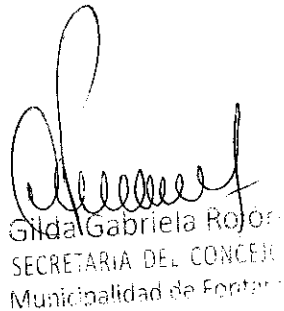 Gilda Gabriela
SECRETARIA DEL CONCEJO
Municipalidad de